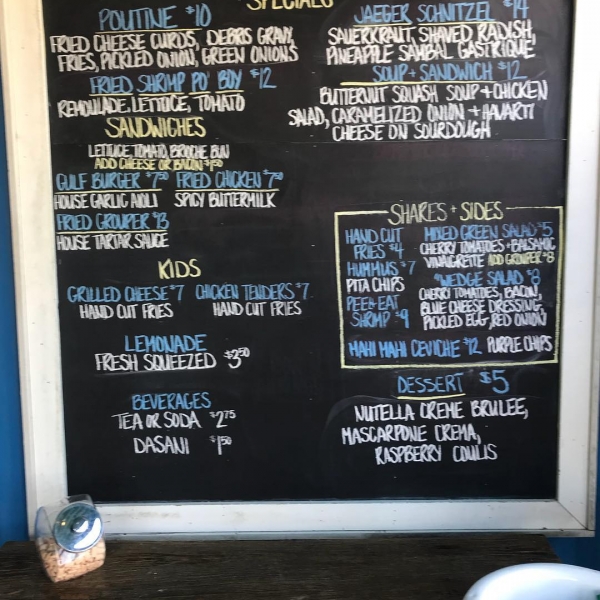 SPECIALS
POUTINE $10
FRIED CHEESE CURDS, DEBRIS GRAVY,
FRIES, PICKLED ONION, GREEN ONIONS
FRIED SHRIMP PO' BOY $12
REMOULADE, LETTUCE, TOMATO
JAEGER SCHNITZEL $14
SAUERKRAUT, SHAVED RADISH,
PINEAPPLE SAMBAL GASTRIQUE
SOUP + SANDWICH $12
BUTTERNUT SQUASH SOUP + CHICKEN
SALAD, CARAMELIZED ONION + HAVARTI
CHEESE ON SOURDOUGH
SANDWICHES
LETTUCE, TOMATO, BRIOCHE BUN
ADD CHEESE OR BACON $1.50
GULF BURGER $7.50
HOUSE GARLIC AIOLI
FRIED CHICKEN $7.50
SPICY BUTTERMILK
FRIED GROUPER $13
HOUSE TARTAR SAUCE
KIDS
GRILLED CHEESE $7
HAND CUT FRIES
CHICKEN TENDERS $7
HAND CUT FRIES
LEMONADE
FRESH SQUEEZED $3.50
BEVERAGES
TEA OR SODA $2.75
DASANI $1.50
SHARES + SIDES
HAND CUT
FRIES $4
HUMMUS $7
PITA CHIPS
PEEL + EAT
SHRIMP $9
MIXED GREEN SALAD $5
CHERRY TOMATOES + BALSAMIC
VINAIGRETTE ADD GROUPER $8
WEDGE SALAD $8
CHERRY TOMATOES, BACON,
BLUE CHEESE DRESSING,
PICKLED EGG, RED ONION
MAHI MAHI CEVICHE $12 PURPLE CHIPS
DESSERT $5
NUTELLA CREME BRULEE,
MASCARPONE CREMA,
RASPBERRY COULIS